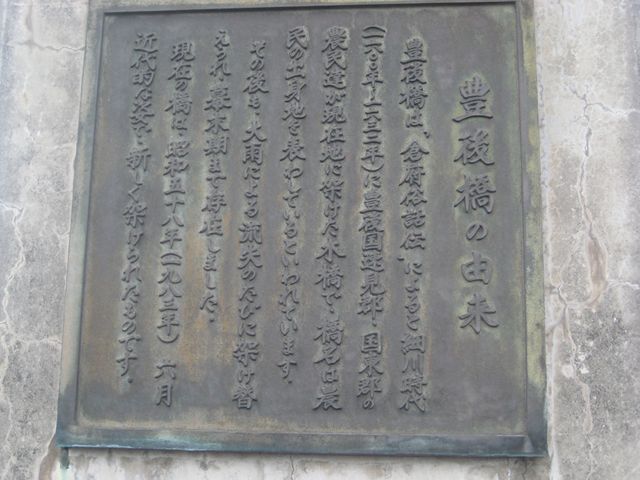 豊後橋の由来
豊後橋は、倉府俗話伝、によると細川時代
(一六〇〇年〜一六三二年)に豊後国速見郡・国東郡の
農民達が現在地に架けた木橋で、橋名は農
民の出身地を表わしているといわれています。
その後も大雨による流失のたびに架け替
えられ幕末期まで存在しました。
現在の橋は、昭和五十八年(一九八三年)六月
近代的な姿で新しく架けられたものです。